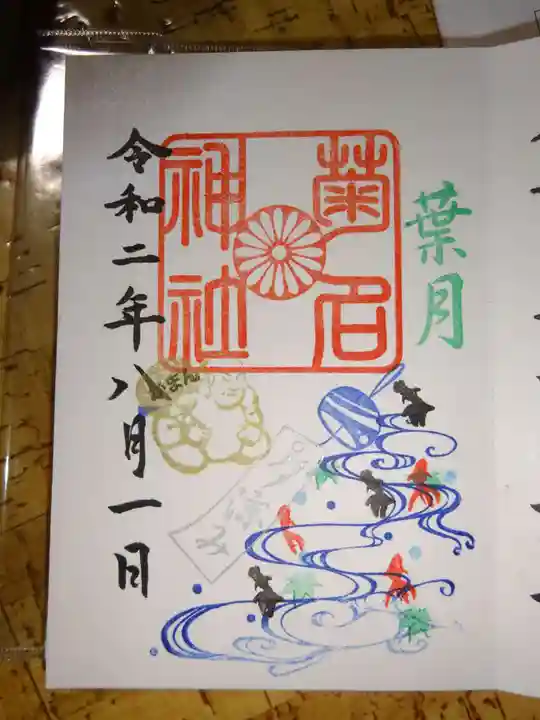 葉月
菊名
神社
がまん
令和二年八月一日